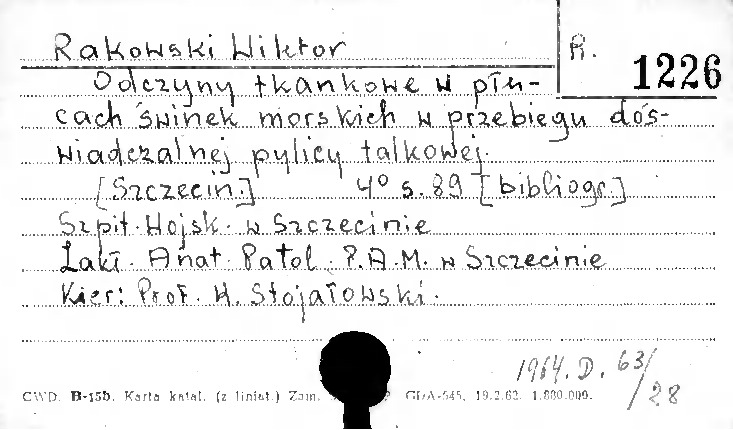 Rakowski Wiktor
R. 1226
Odczyny tkankowe w płu-
cach świnek morskich w przebiegu doś-
wiadczalnej pylicy talkowej.
[Szczecin.] 4° s. 89 [bibliogr.]
Szpit. Wojsk. w Szczecinie
Zakł. Anat. Patol. P.A.M. w Szczecinie
Kier: Prof. W. Stojałowski.
1964. D. 63/
/28
CWD. B-15b. Karta katal. (z liniat.) Zam. GDA-545. 19.2.62. 1.800.000.